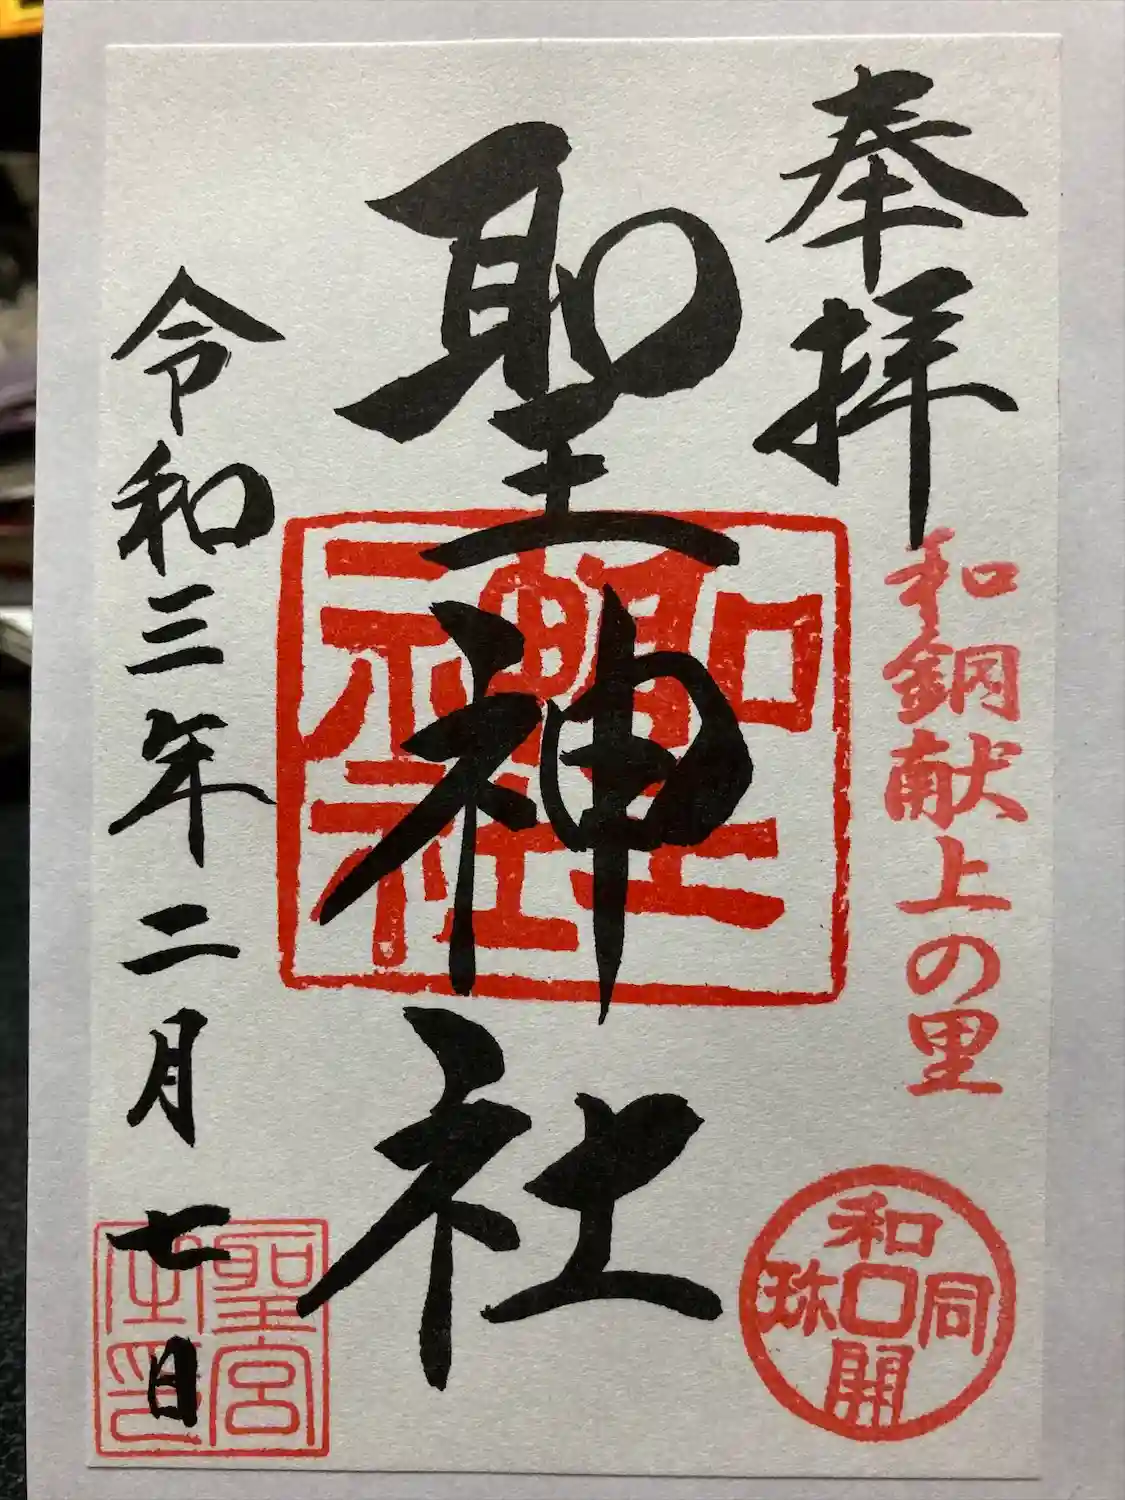 奉拝
和銅献上の里
和同開珎
聖神社
聖神社
令和三年二月七日
聖宮